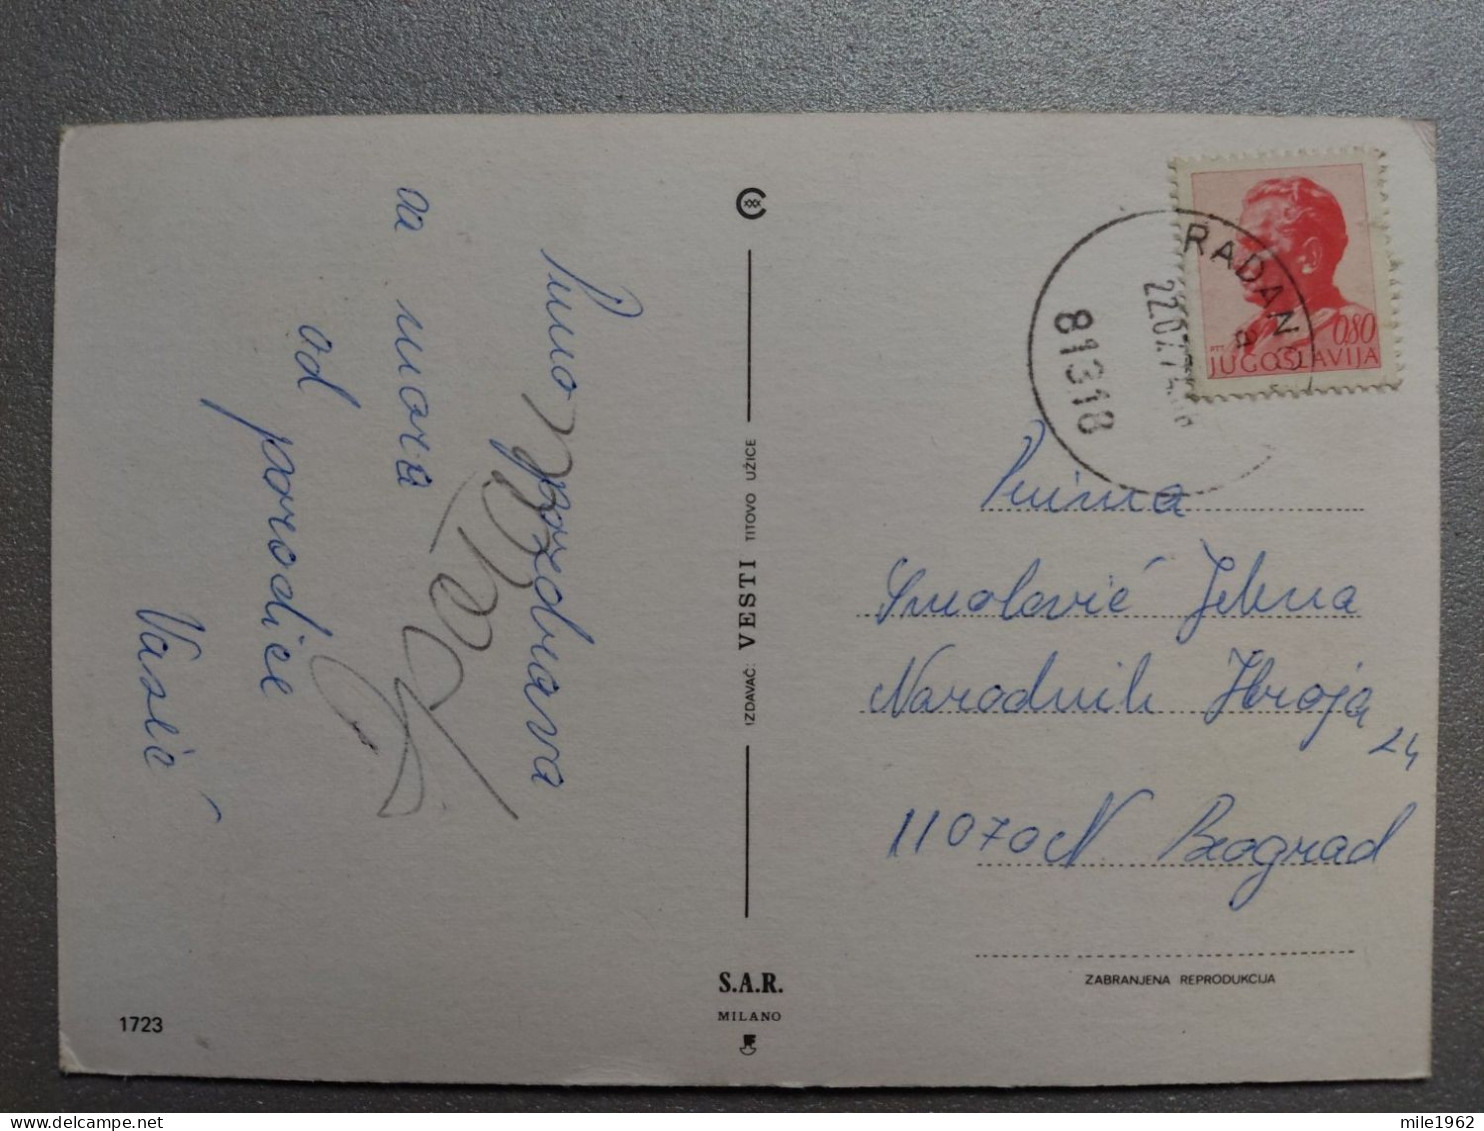 Puno pozdrava
sa mora
od porodice
Vasić
IZDAVAČ: VESTI TITOVO UŽICE
S.A.R.
MILANO
1723
RADAN
22.07.74
81318
0,80
PTT
JUGOSLAVIJA
Prima
Smolović Jelena
Narodnih Heroja
24
11070 N Beograd
ZABRANJENA REPRODUKCIJA
mile1962